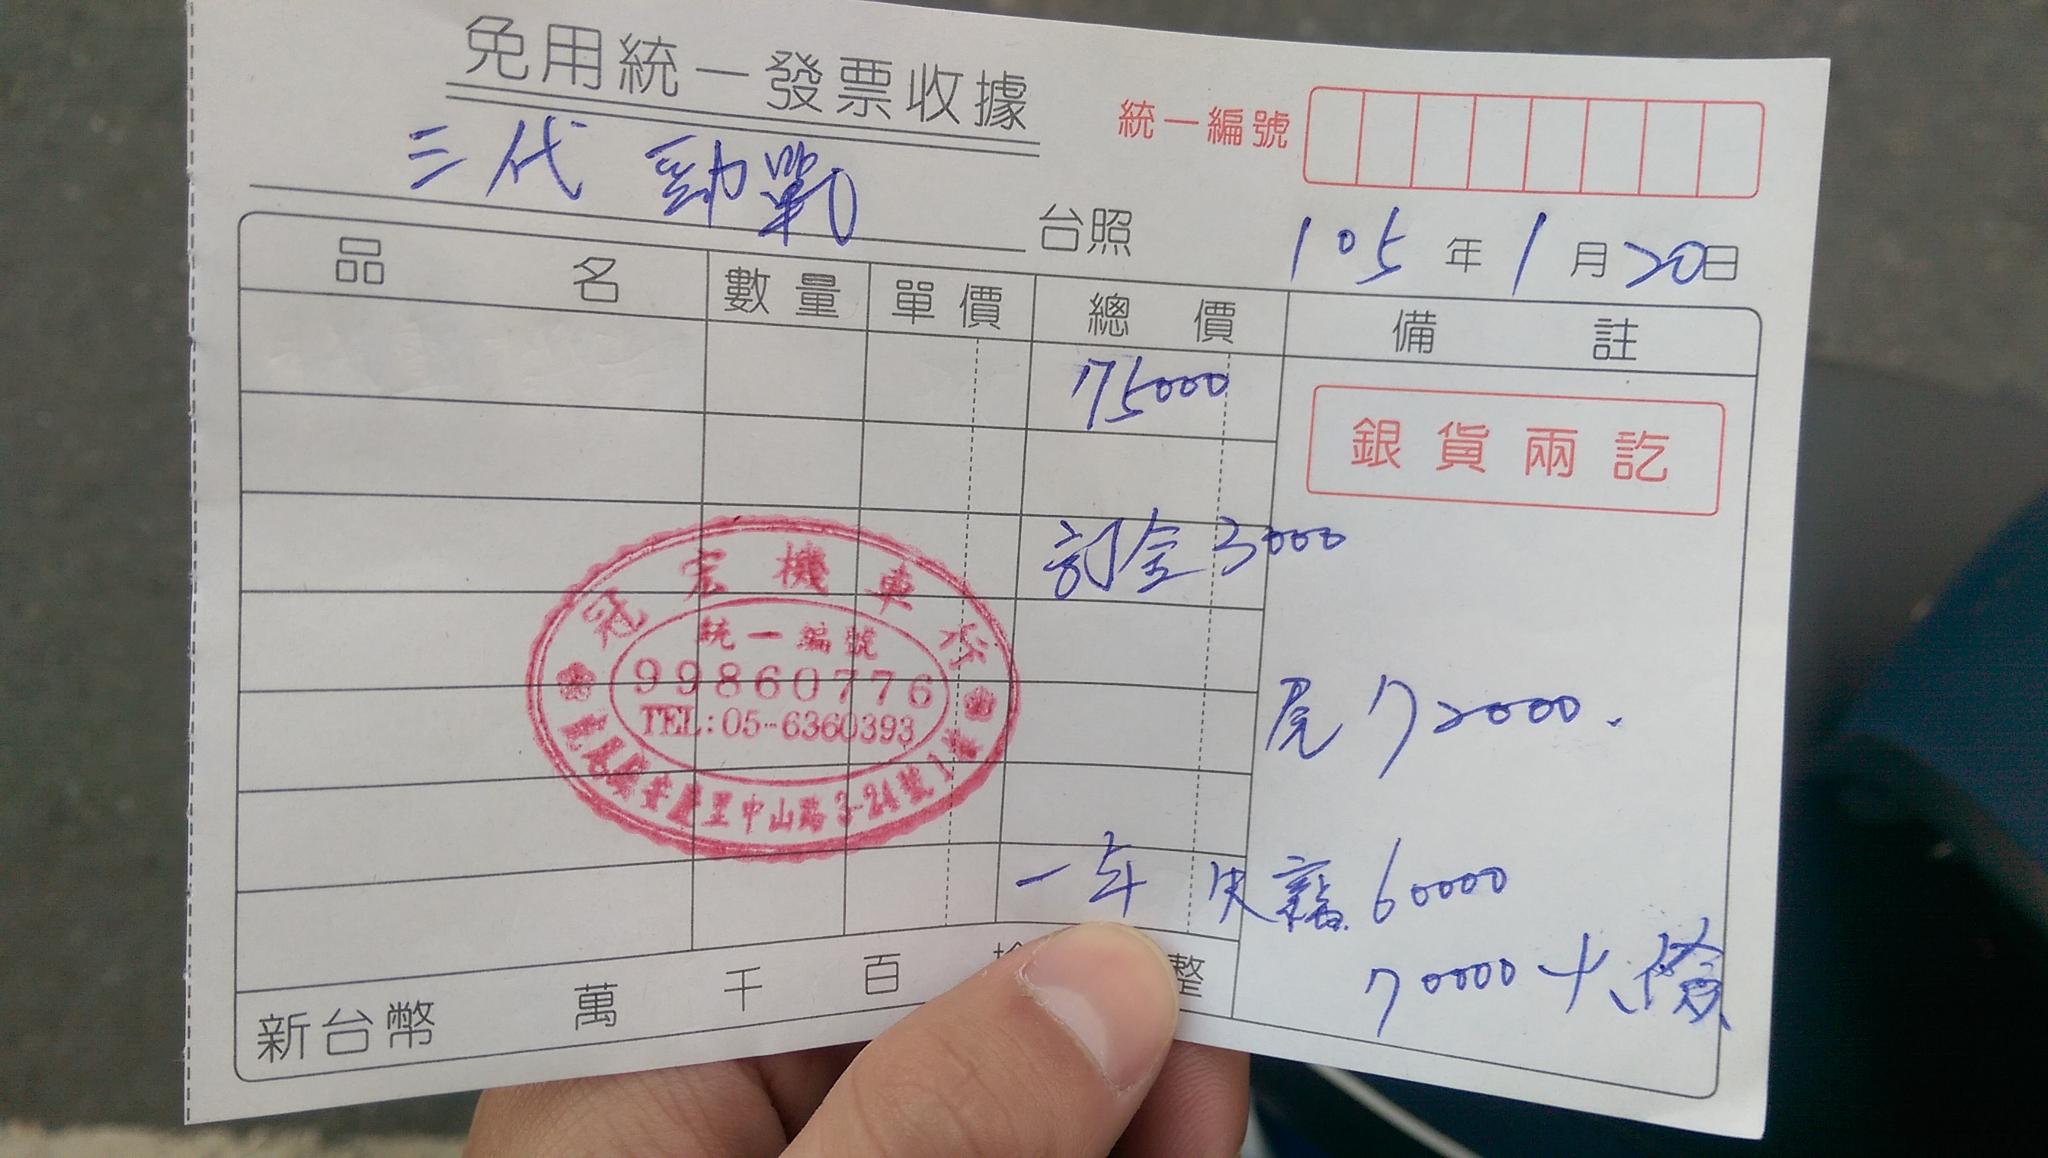 免用統一發票收據
統一編號
三代 勁戰 台照
105年1月20日
品名 數量 單價 總價 備註
75000
銀貨兩訖
訂金3000
冠宏機車行
統一編號
99860776
TEL:05-6360393
里中山路3-24號1樓
尾72000.
一年 失竊 60000
70000十
新台幣 萬 千 百 整